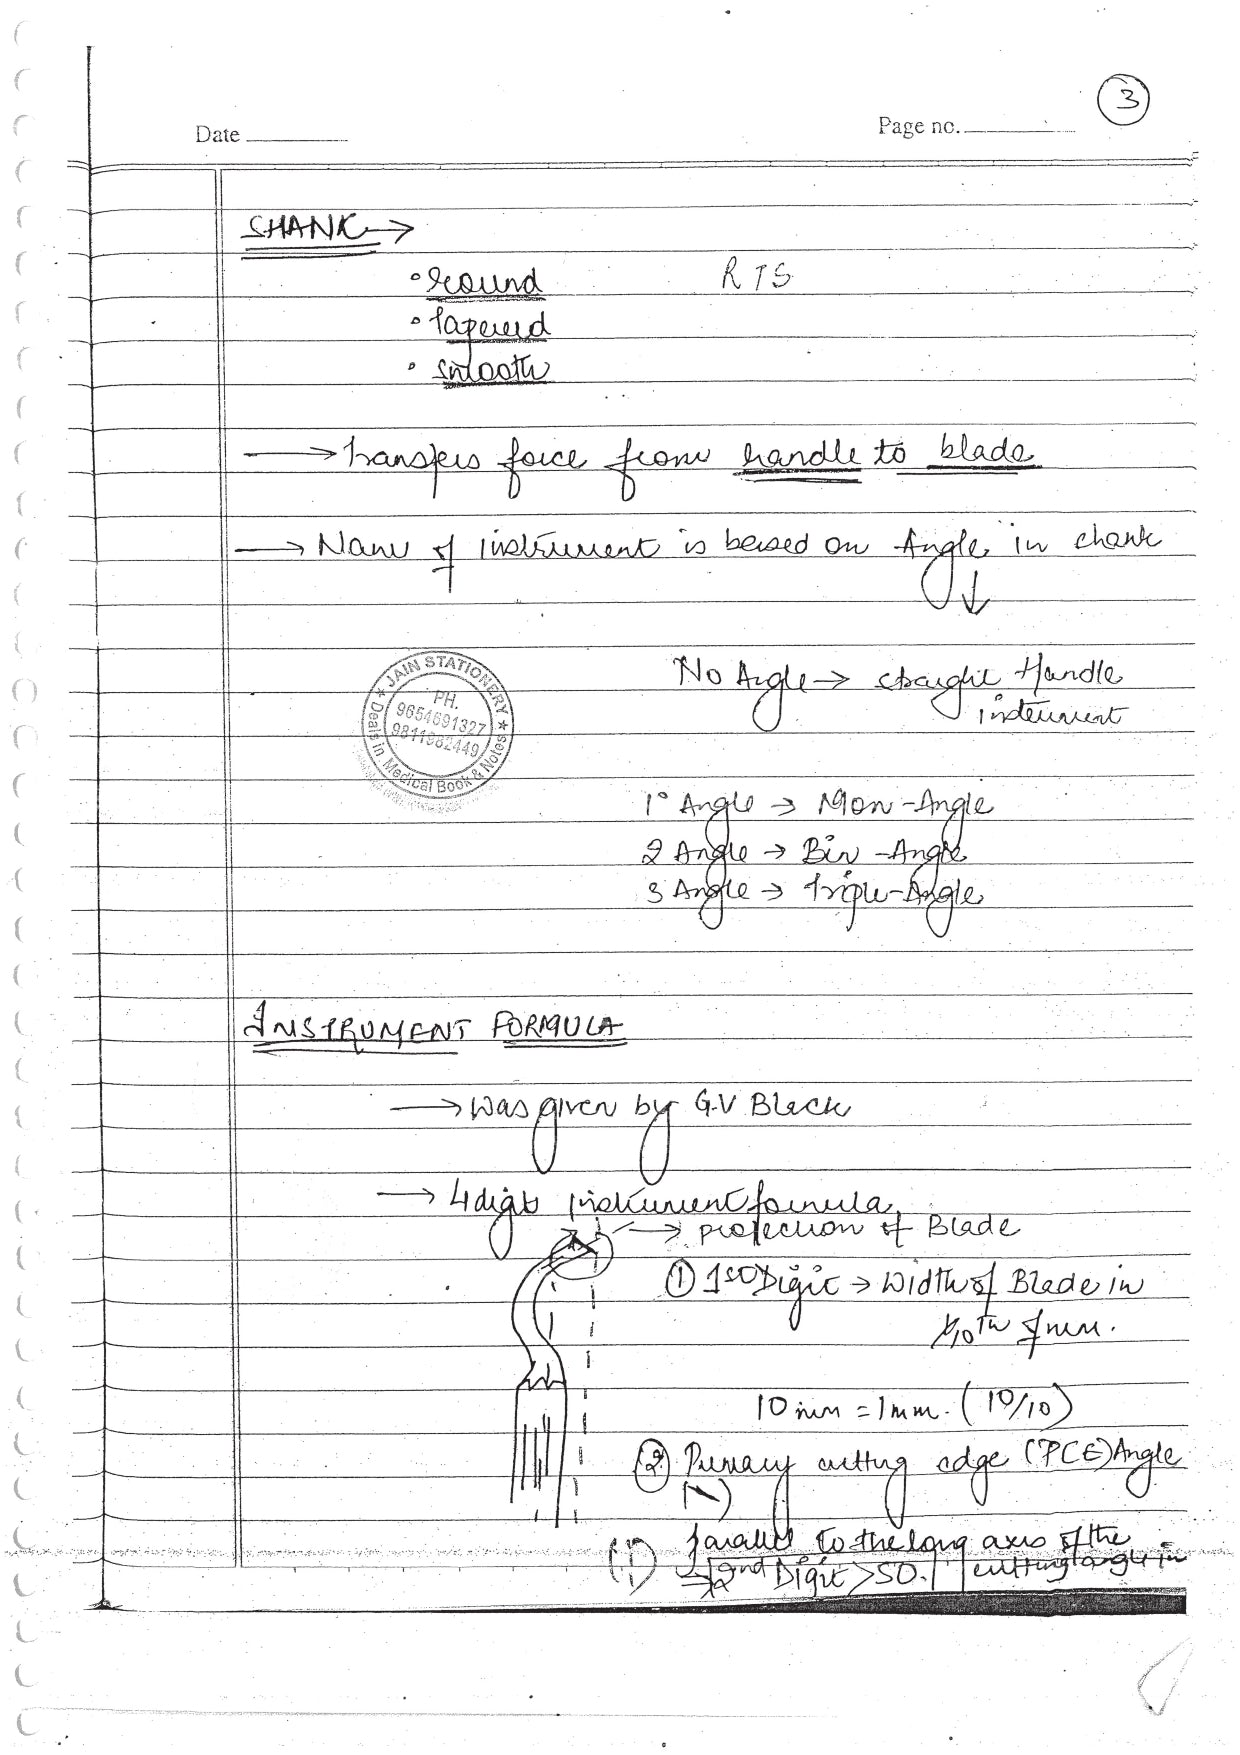 3
Date
Page no.
SHANK →
• round R T S
• Tapered
• smooth
→ Transfers force from handle to blade
→ Name of instrument is based on Angle in shank
↓
No Angle → straight Handle
instrument
JAIN STATIONERY
PH.
9654691327
9811982449
Deals in Medical Book & Notes
1° Angle → Mon-Angle
2 Angle → Bin-Angle
3 Angle → Triple-Angle
INSTRUMENT FORMULA
→ Was given by G.V Black
→ 4 digit instrument formula
→ projection of Blade
① 1st Digit → Width of Blade in
1/10th of mm.
10 mm = 1 mm. (10/10)
② Primary cutting edge (PCE) Angle
(i) parallel to the long axis of the
→ 2nd Digit > 50. cutting angle in